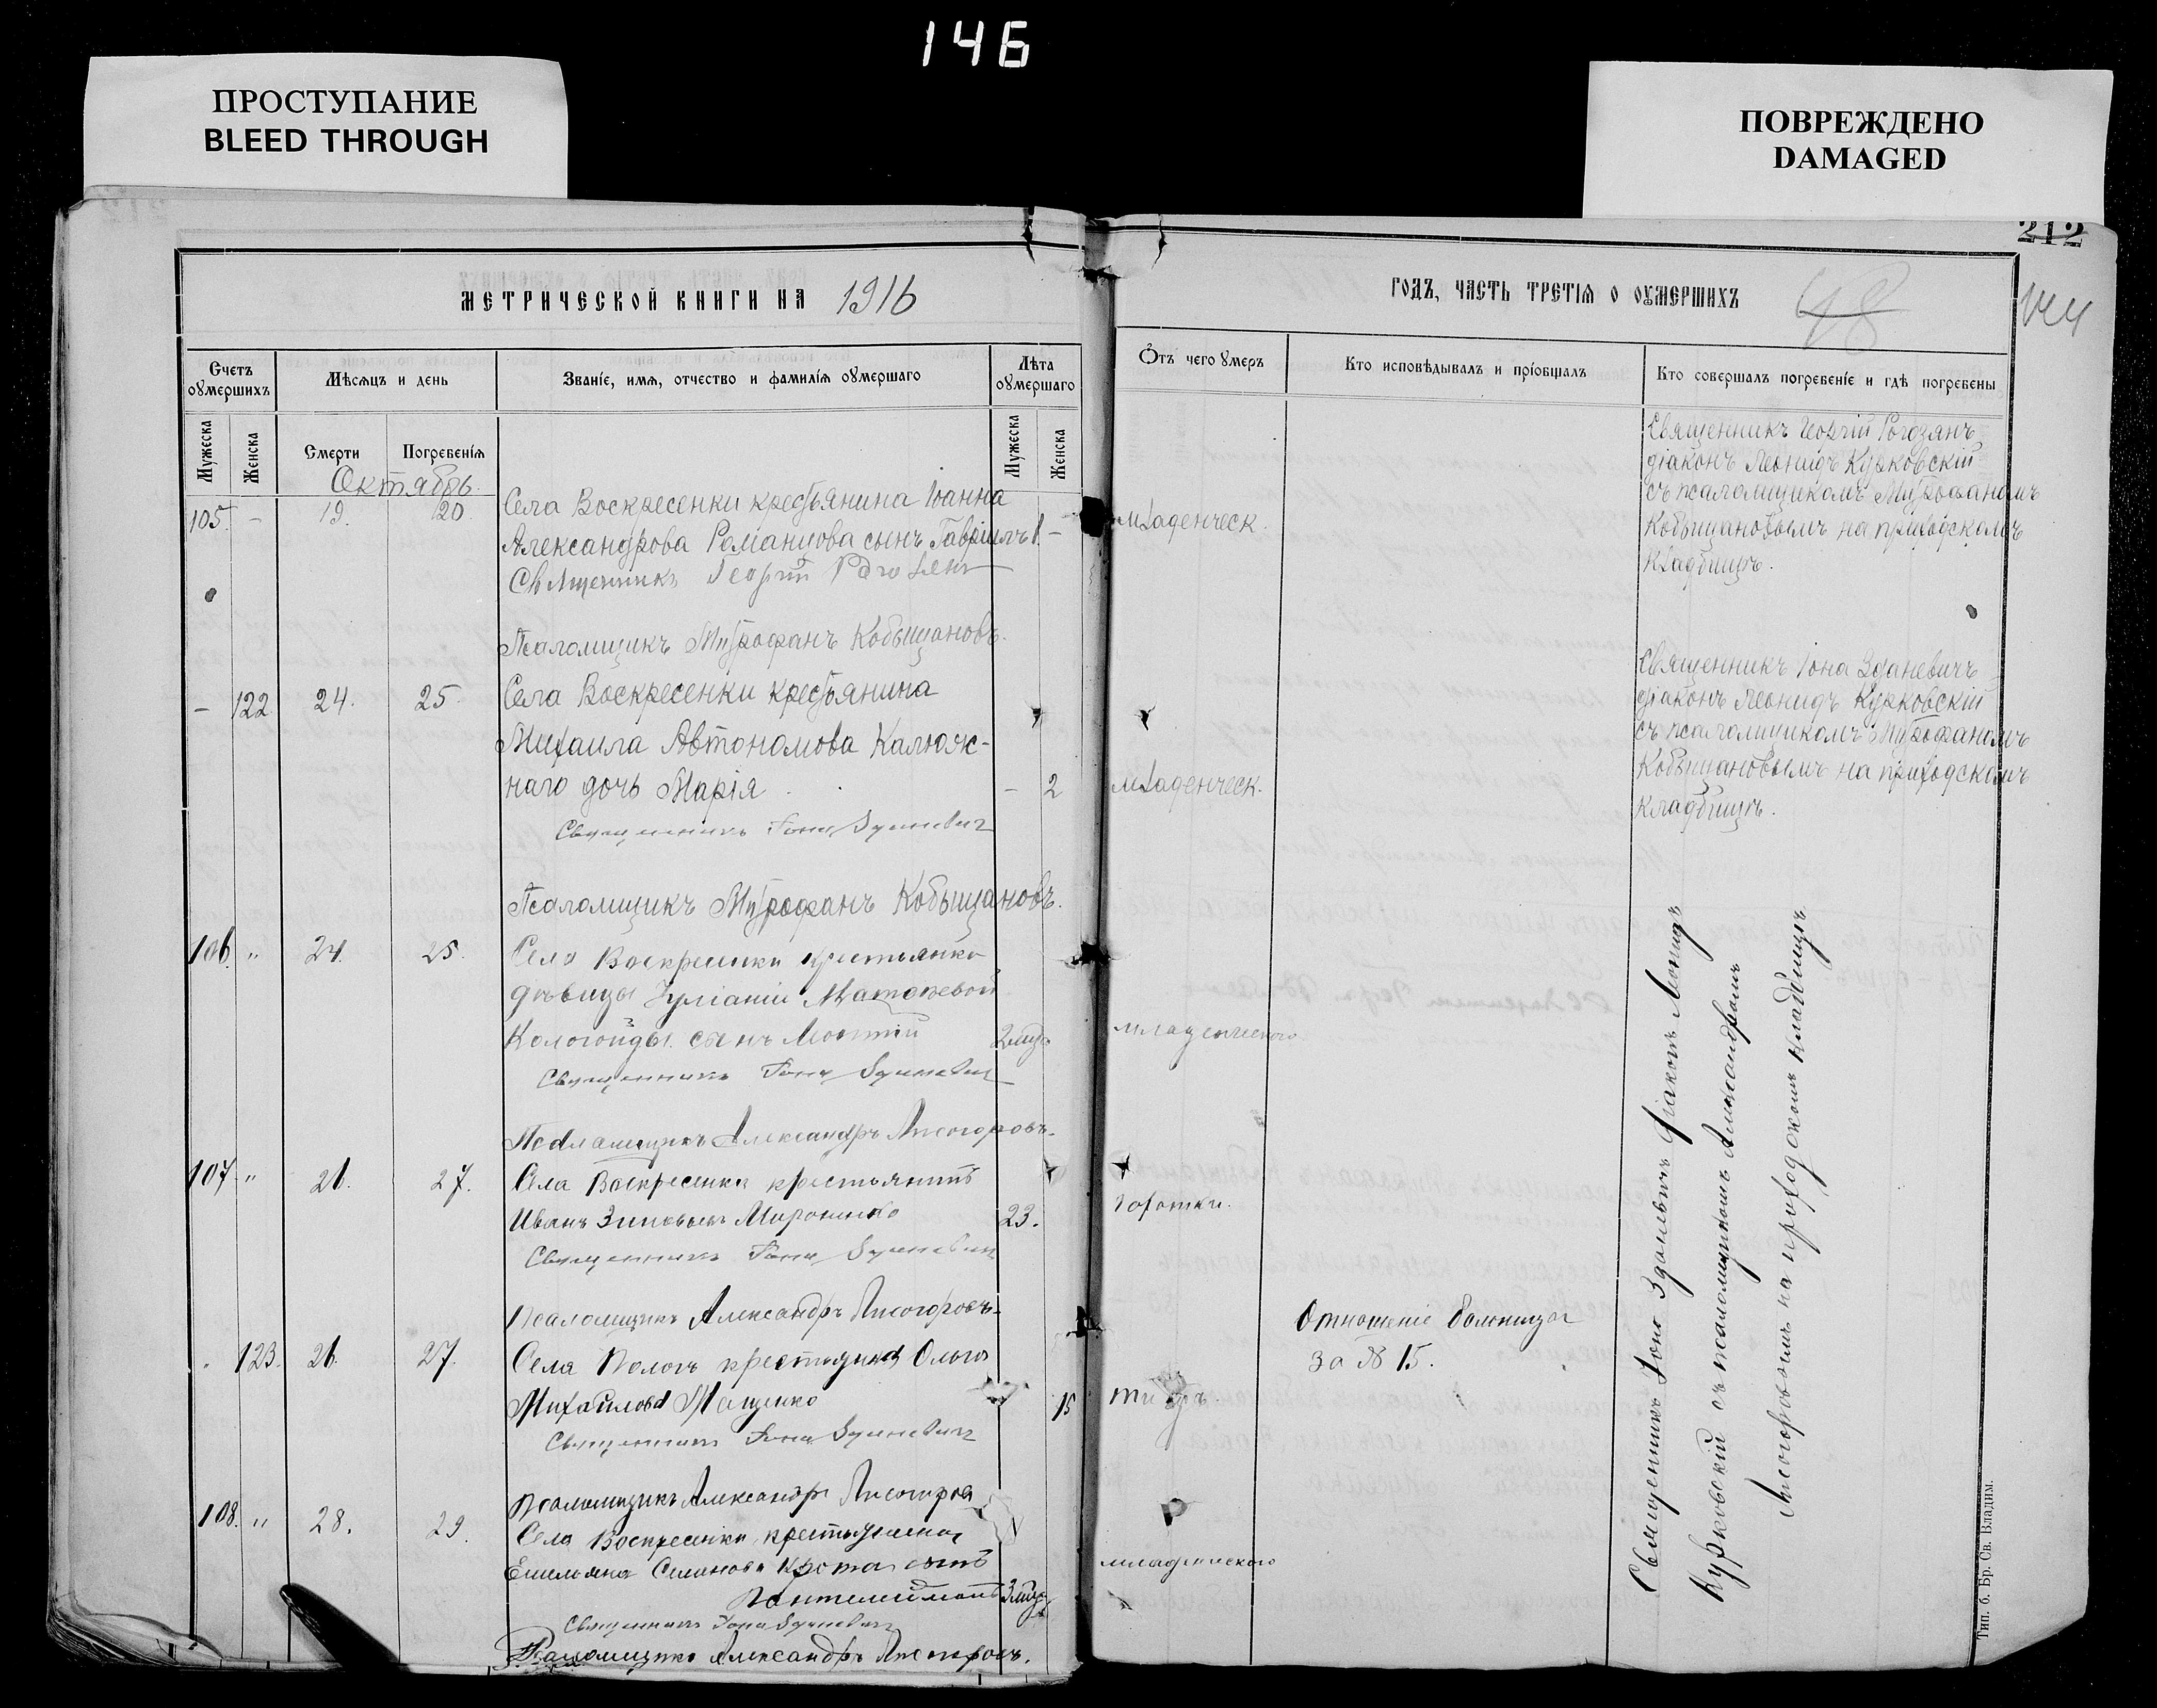 146
ПРОСТУПАНИЕ
BLEED THROUGH
ПОВРЕЖДЕНО
DAMAGED
212
МЕТРИЧЕСКОЙ КНИГИ НА 1916
Счетъ оумершихъ
Мѣсяцъ и день
Званіе, имя, отчество и фамилія оумершаго
Лѣта оумершаго
Мужеска
Женска
Смерти
Погребенія
Мужеска
Женска
Октябрь.
105. - 19. 20. Села Воскресенки крестьянина Іоанна
Александрова Романцова сынъ Гавріилъ 1. -
Священникъ Георгій Рогозянъ
Псаломщикъ Митрофанъ Кобыщановъ.
- 122 24. 25. Села Воскресенки крестьянина
Михаила Автономова Калюж-
наго дочь Марія - 2
Священникъ Іона Зданевич
Псаломщикъ Митрофанъ Кобыщановъ.
106. " 24. 25. Села Воскресенки крестьянки
дѣвицы Іуліаніи
сынъ 2 мѣс
Священникъ Іона Зданевич
Псаломщикъ Александръ Лисогоровъ.
107. " 26. 27. Села Воскресенки крестьянинъ
Иванъ Мироненко 23.
Священникъ Іона Зданевич
Псаломщикъ Александръ Лисогоровъ.
123. 26. 27. Села Пологъ крестьянка Ольга
Михайлова 15
Священникъ Іона Зданевич
Псаломщикъ Александръ Лисогоров
108. " 28. 29. Села Воскресенки крестьянина
Емельяна Семенова Крота сынъ
Пантелеимонъ 3 мѣс
Священникъ Іона Зданевич
Псаломщикъ Александръ Лисогоровъ.
ГОДЪ, ЧАСТЬ ТРЕТІЯ О ОУМЕРШИХЪ
48
144
Отъ чего умеръ
Кто исповѣдывалъ и пріобщалъ
Кто совершалъ погребеніе и гдѣ погребены
младенческ.
Священникъ Георгій Рогозянъ
діаконъ Леонидъ Курковскій
съ псаломщикомъ Митрофаномъ
Кобыщановымъ на приходскомъ
кладбищѣ.
младенческ.
Священникъ Іона Зданевичъ
діаконъ Леонидъ Курковскій
съ псаломщикомъ Митрофаномъ
Кобыщановымъ на приходскомъ
кладбищѣ.
младенческаго
чахотки.
Отношеніе больницы
за № 15.
тифъ.
младенческаго
Священникъ Іона Зданевичъ діаконъ Леонидъ
Курковскій съ псаломщикомъ Александромъ
Лисогоровымъ на приходскомъ кладбищѣ
Тип. б. Бр. Св. Владим.